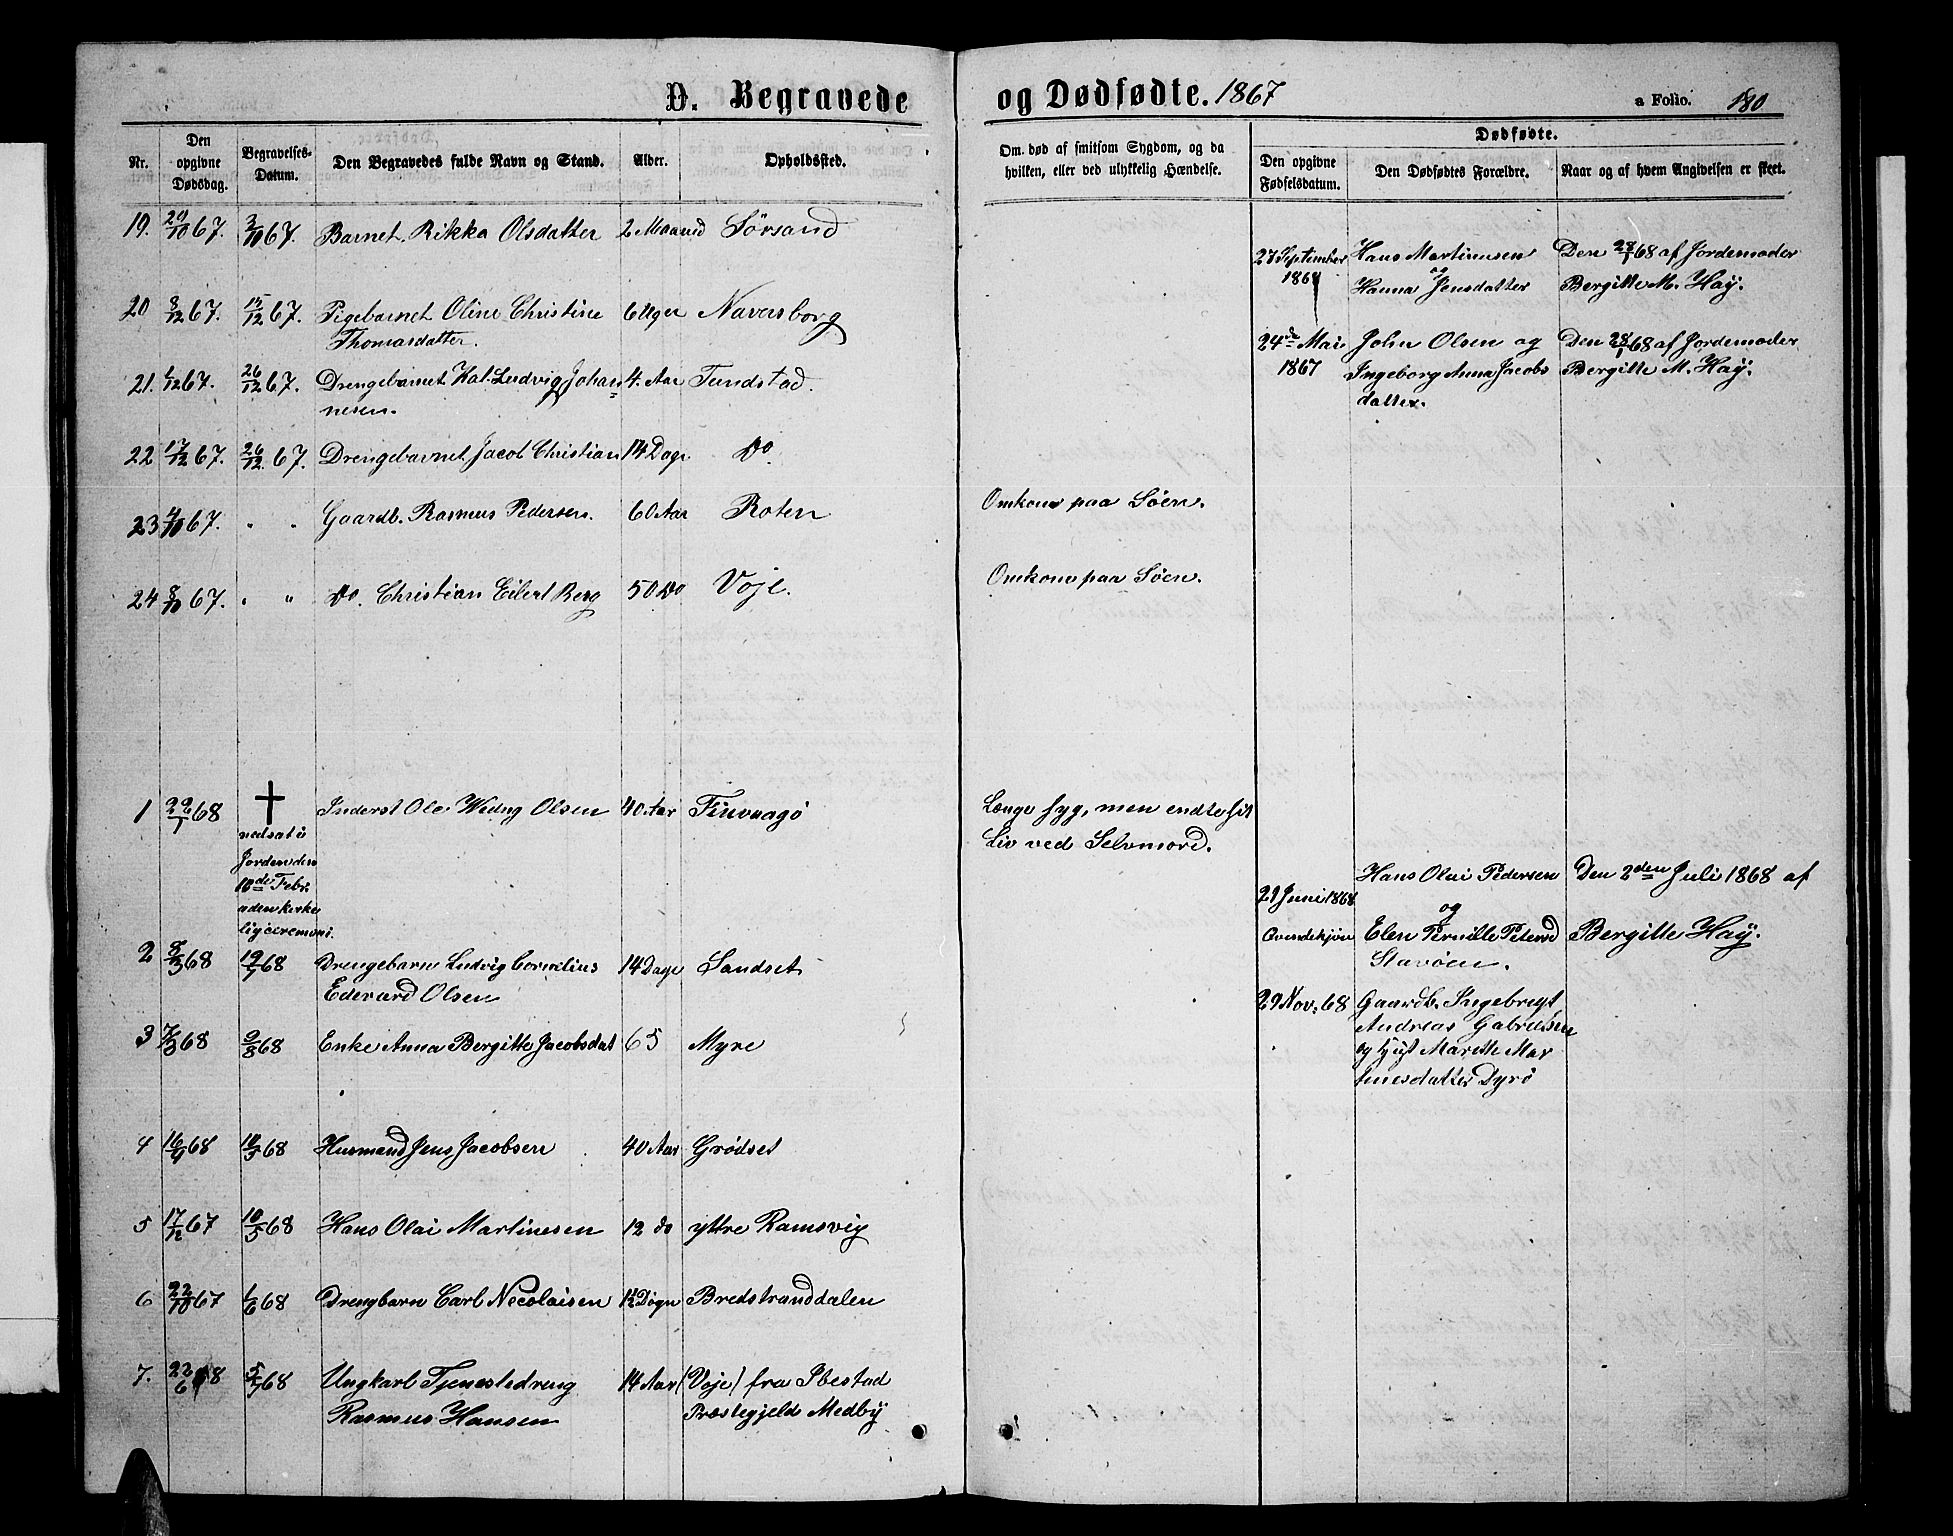 D. Begravede og Dødfødte. 1867 a Folio. 180
Nr. Den opgivne Dødsdag. Begravelses-Datum. Den Begravedes fulde Navn og Stand. Alder. Opholdsted.
Om død af smitsom Sygdom, og da hvilken, eller ved ulykkelig Hændelse.
Dødfødte.
Den opgivne Fødselsdatum. Den Dødfødtes Forældre. Naar og af hvem Angivelsen er skeet.
19. 20/10 67. 2/10 67. Barnet Rikka Olsdatter 2 Maaned Sørsand
20 8/12 67. 15/12 67. Pigebarnet Oline Christine 6 Uger Naversborg
Thomasdatter.
21. 1/12 67. 26/12 67. Drengebarnet Hal. Ludvig Johan= 4. Aar Tundstad.
nesen.
22 17/12 67. 26/12 67. Drengebarnet Jacob Christian 14 Dage Do
23 4/10 67. " " Gaardb. Rasmus Pedersen. 60 Aar Roten Omkom paa Søen.
24 8/10 67. " " Do. Christian Eilert Berg 50 Do Voje. Omkom paa Søen.
1 22/1 68 † Inderst Ole Weding Olsen 40 Aar Finvaagø Længe syg, men endte sit
nedsat i Liv ved Selvmord.
Jorden den
10de Febr.
uden kirke
lig ceremoni.
2 8/3 68 19/7 68 Drengebarn Ludvig Cornelius 14 Dage Sandset
Edevard Olsen
3 7/3 68 9/8 68 Enke Anna Bergitte Jacobsdat 65 Myre
4 16/4 68 10/5 68 Husmand Jens Jacobsen 40 Aar Grødset
5 17/12 67 10/5 68 Hans Olai Martinesen 12 do yttre Ramsvig
6 22/10 67 1/6 68 Drengbarn Carl Necolaisen 1½ Døgn Bredstranddalen
7. 22/6 68 5/7 68 Ungkarl Tjenestedreng 14 Aar (Voje) fra Ibestad
Rasmus Hansen Præstegjeld Medby
27 September Hans Martinusen Den 28/1 68 af Jordemoder
1867 og Hanna Jensdatter Bergitte M. Haÿ.
24de Mai John Olsen og Den 28/1 68 af Jordemoder
1867 Ingeborg Anna Jacobs Bergitte M. Haÿ.
datter.
29 Juni 1868 Hans Olai Pedersen Den 2den Juli 1868 af
og
Qvindekjøn Elen Pernille Petersd Bergitte Haÿ.
Stavøen.
29 Nov. 68 Gaardb. Ingebrigt
Andreas Gabrielsen
og Hust Marette Mar
tinesdatter Dyrø